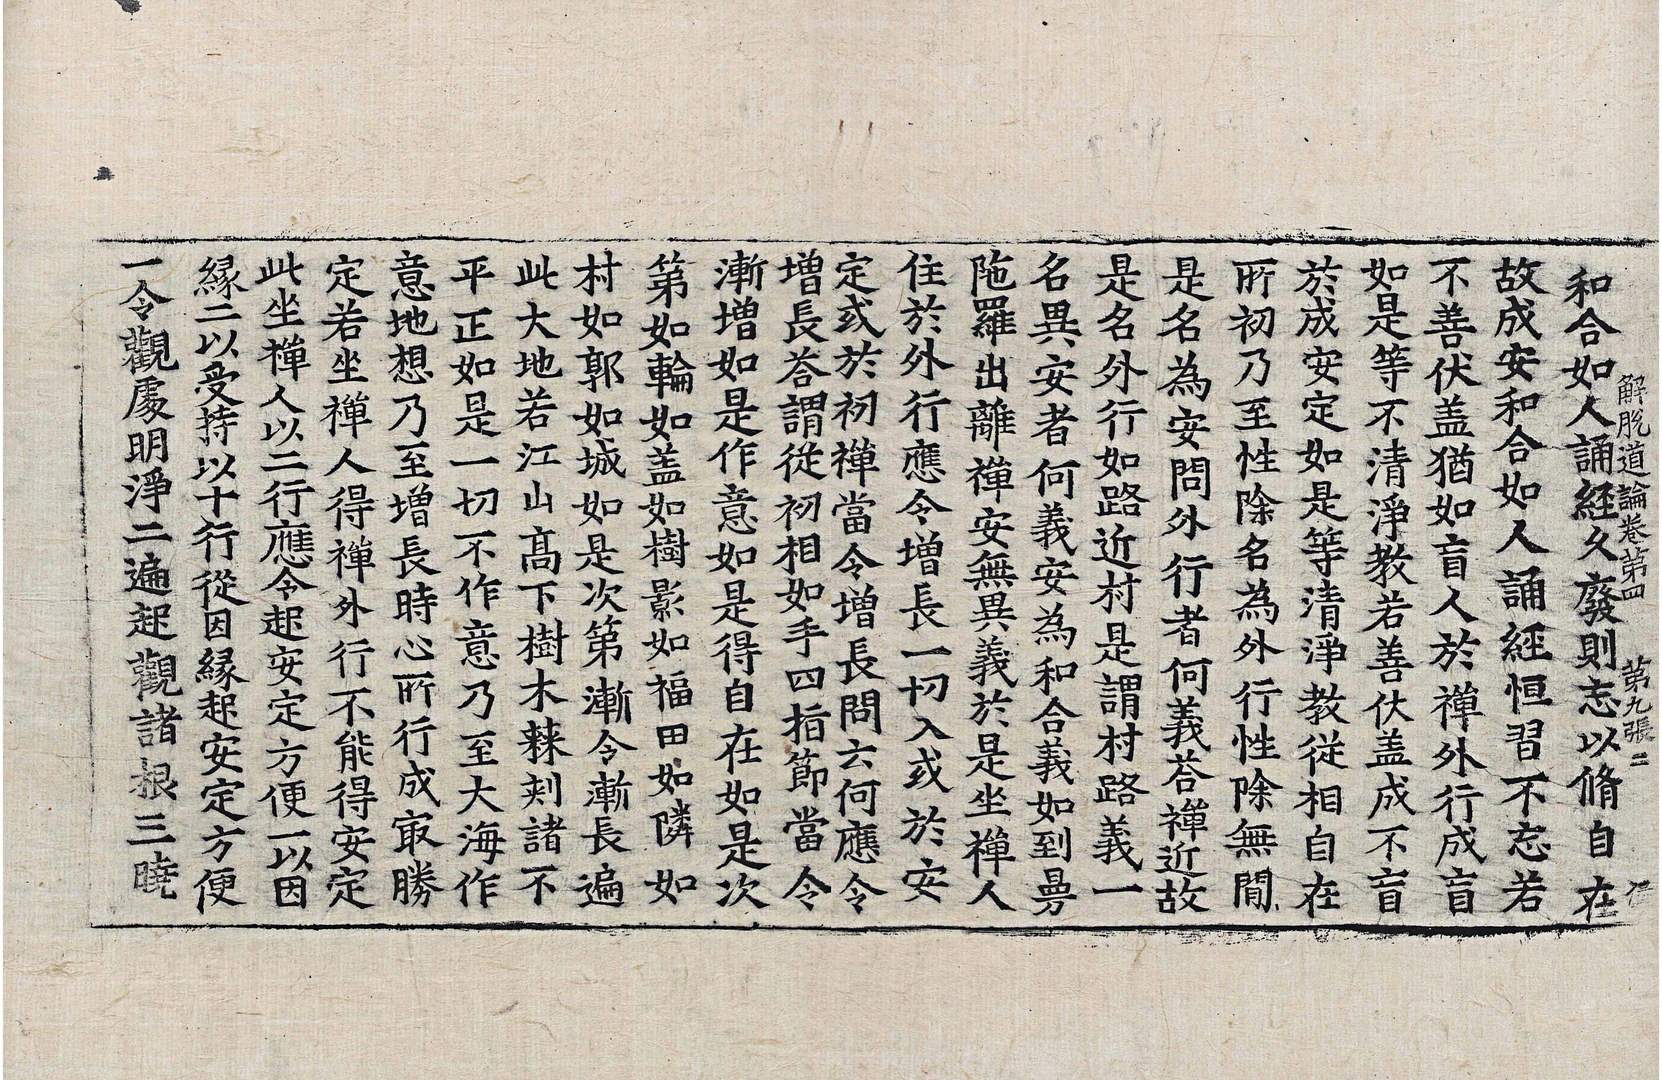 解脫道論卷第四 第九張 二
和合如人誦經久廢則忘以脩自在
故成安和合如人誦經恒習不忘若
不善伏盖猶如盲人於禪外行成盲
如是等不清淨教若善伏盖成不盲
於成安定如是等清淨教從相自在
所初乃至性除名為外行性除無間
是名為安問外行者何義荅禪近故
是名外行如路近村是謂村路義一
名異安者何義安為和合義如到曼
陁羅出離禪安無異義於是坐禪人
住於外行應令增長一切入或於安
定或於初禪當令增長問云何應令
增長荅謂從初相如手四指節當令
漸增如是作意如是得自在如是次
第如輪如盖如樹影如福田如隣如
村如郭如城如是次第漸令漸長遍
此大地若江山高下樹木棘刾諸不
平正如是一切不作意乃至大海作
意地想乃至增長時心所行成㝡勝
定若坐禪人得禪外行不能得安定
此坐禪人以二行應令起安定方便一以因
緣二以受持以十行從因緣起安定方便
一令觀處明淨二遍起觀諸根三曉